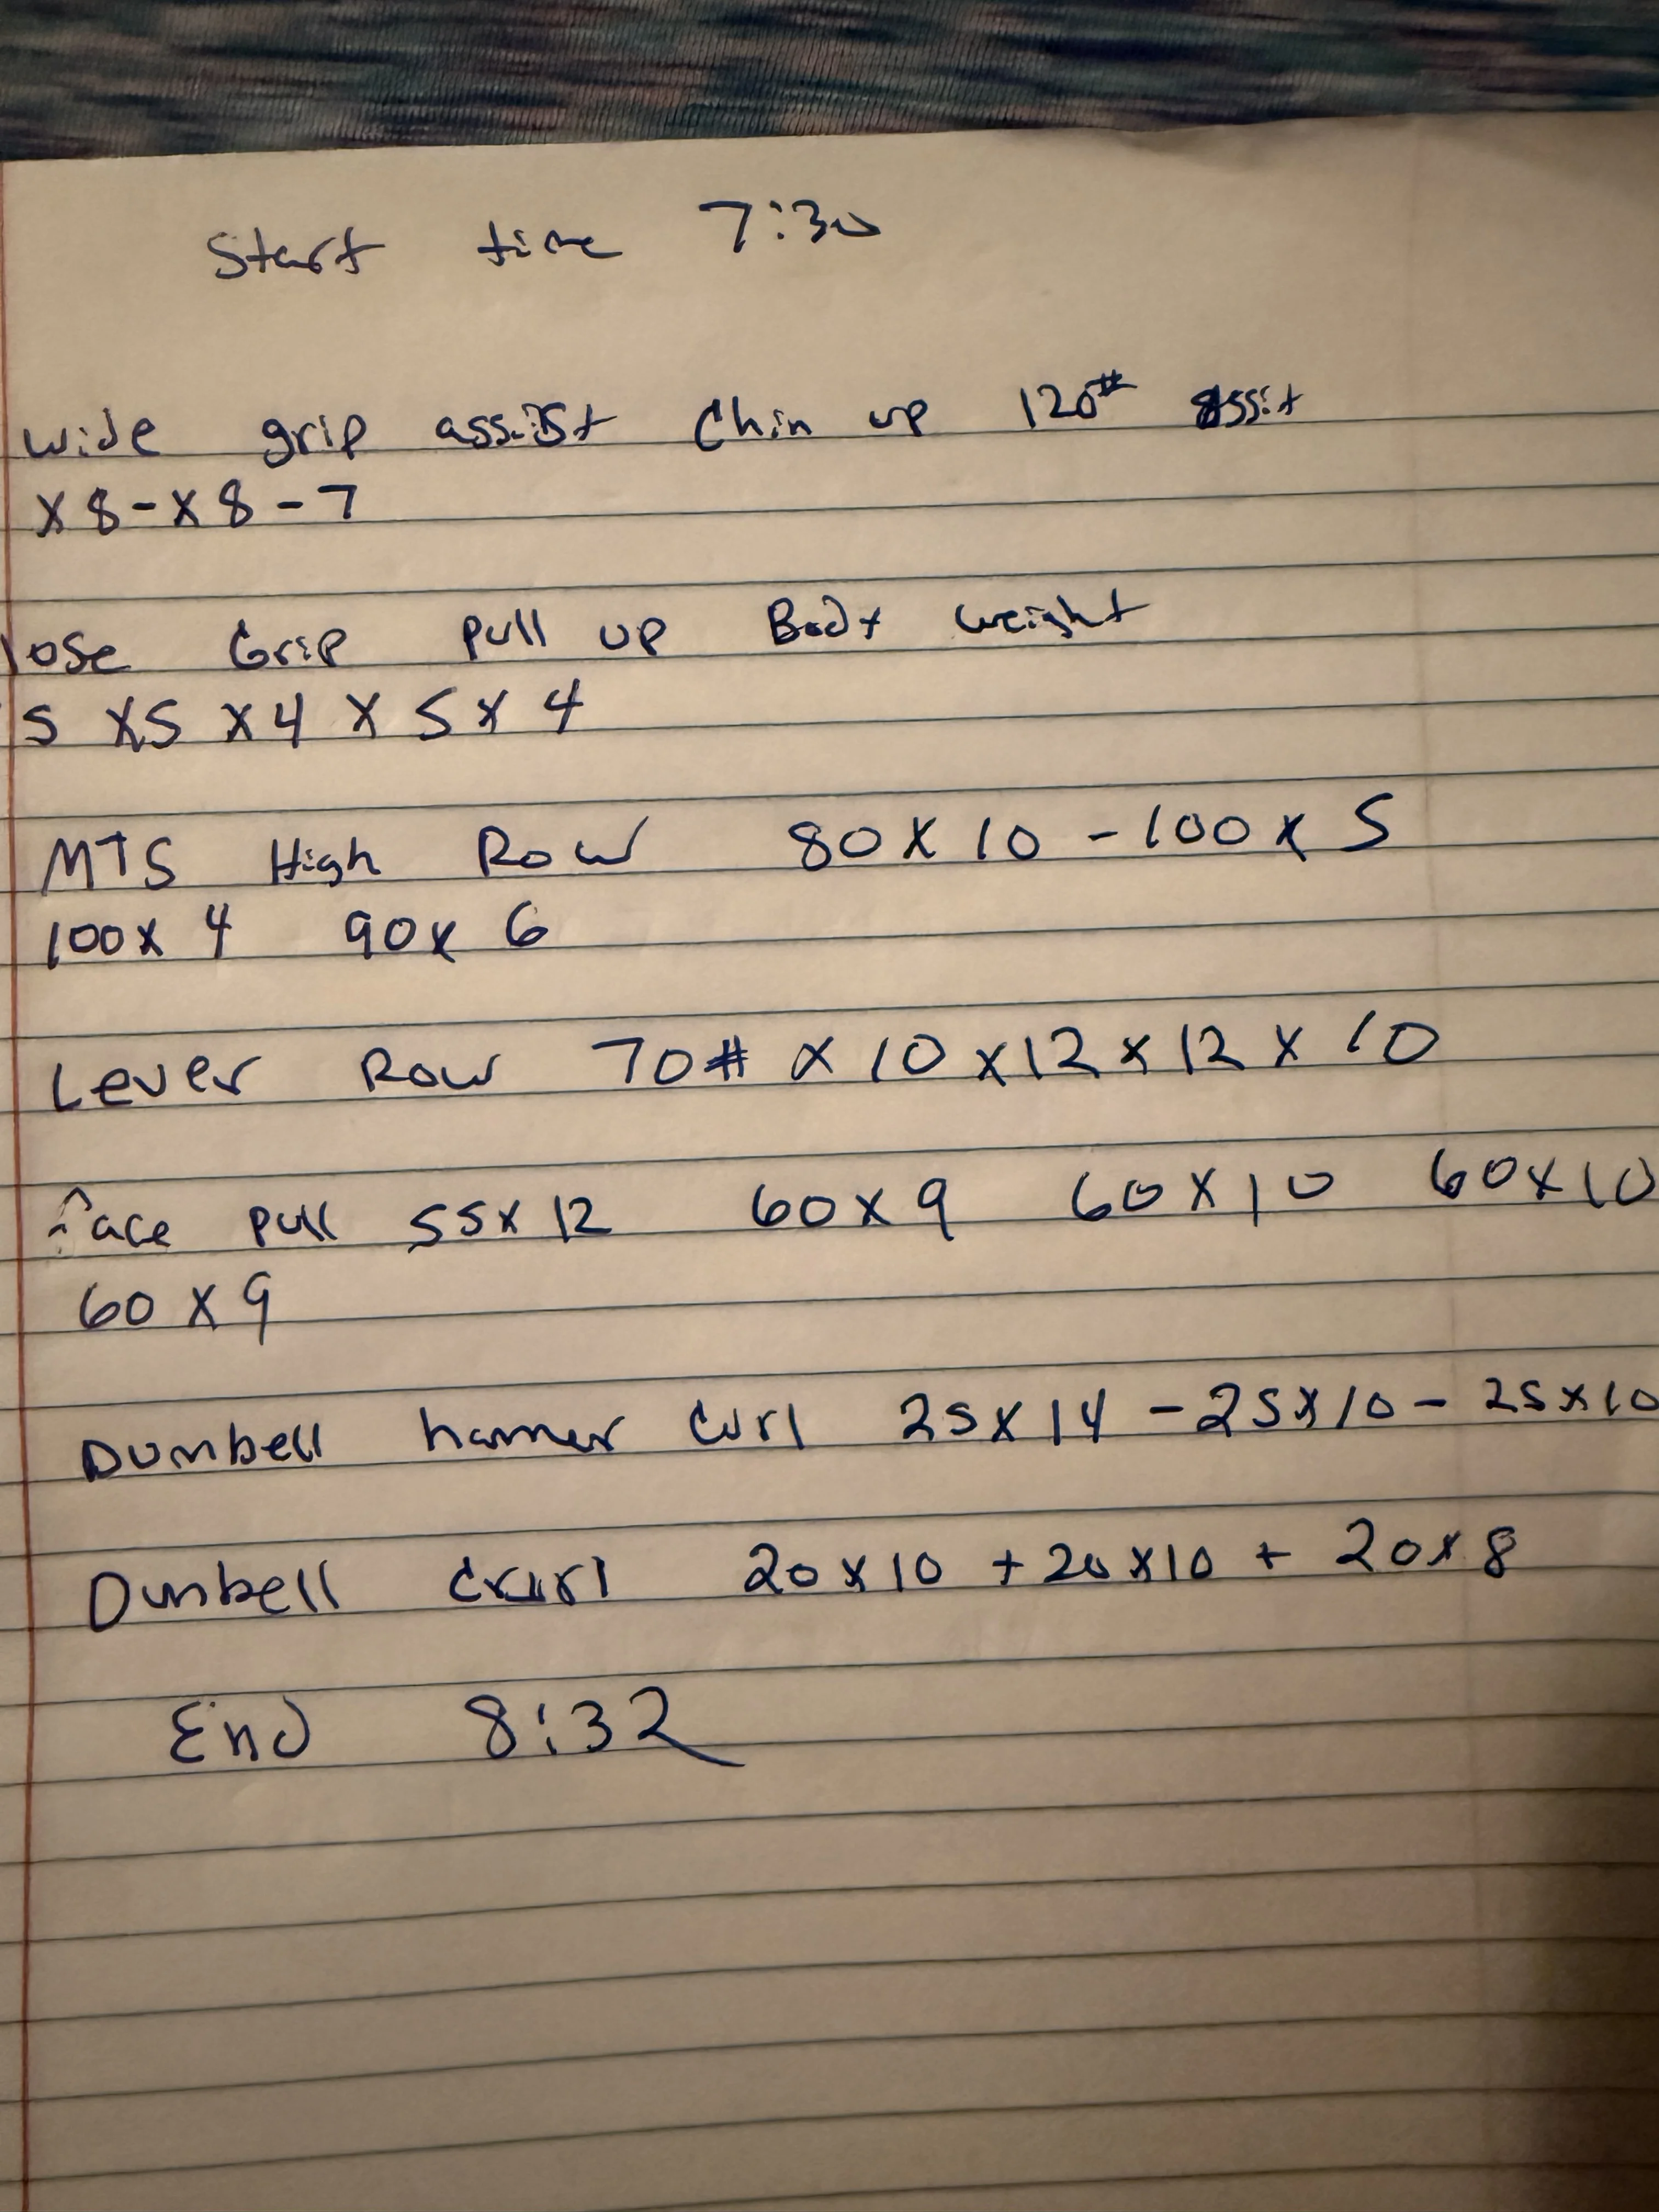 Start time 7:30
Wide grip assist Chin up 120# assit
x 8 - x 8 - 7
lose Grip Pull up Body weight
5 x5 x 4 x 5 x 4
MTS High Row 80 x 10 - 100 x 5
100 x 4 90 x 6
Lever Row 70# x 10 x 12 x 12 x 10
Face Pull 55 x 12 60 x 9 60 x 10 60 x 10
60 x 9
Dumbell hamer Curl 25 x 14 - 25 x 10 - 25 x 10
Dumbell 20 x 10 + 20 x 10 + 20 x 8
End 8:32